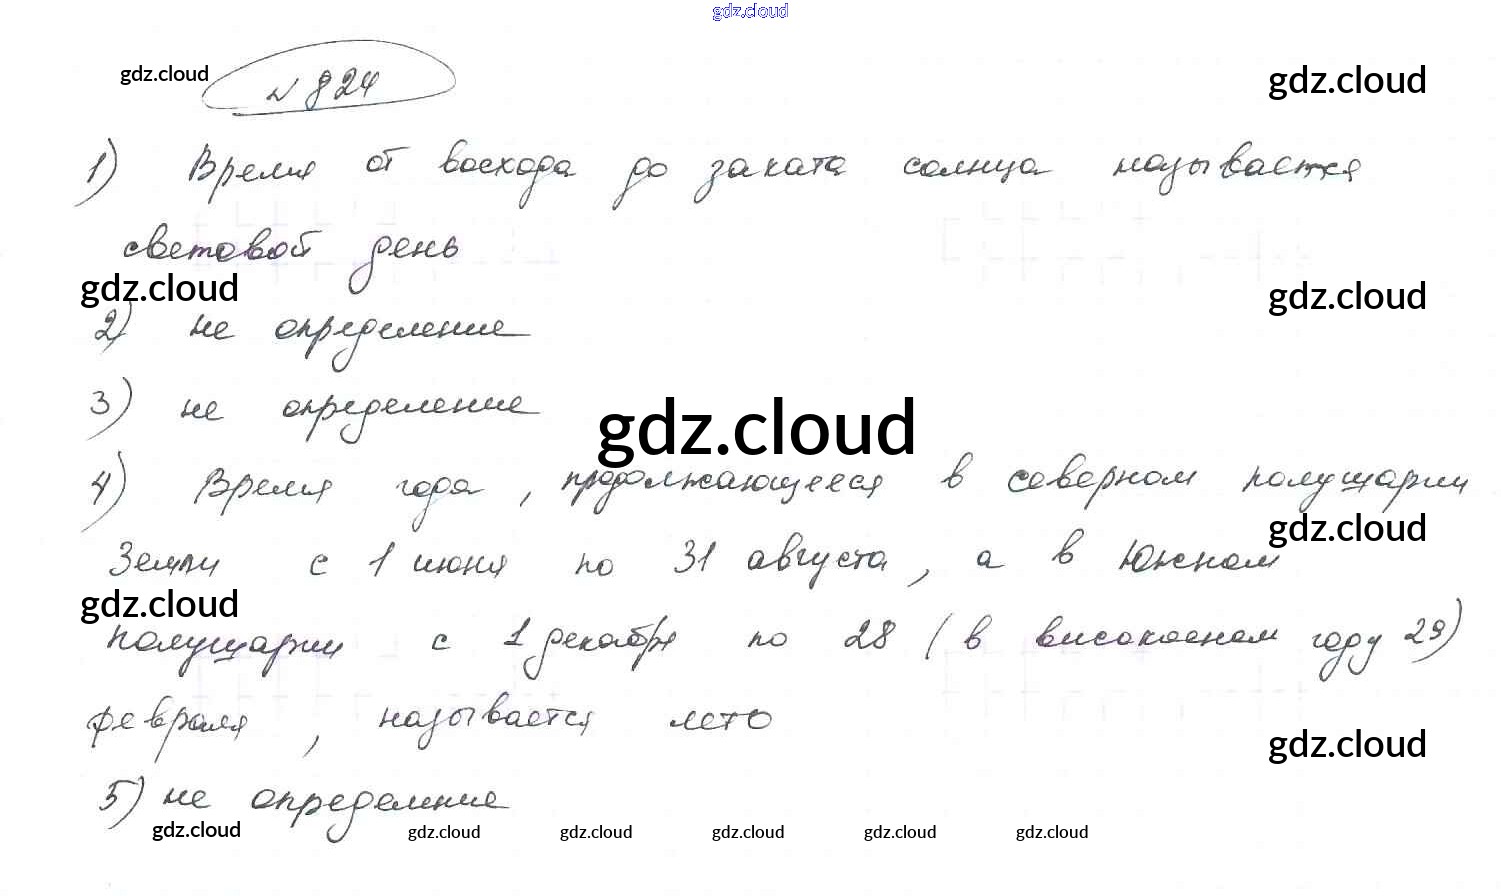 gdz.cloud
gdz.cloud № 824 gdz.cloud
1) Время от восхода до заката солнца называется
световой день
gdz.cloud gdz.cloud
2) не определение
3) не определение
gdz.cloud
4) Время года, продолжающееся в северном полушарии
gdz.cloud
Земли с 1 июня по 31 августа, а в Южном
gdz.cloud
полушарии с 1 декабря по 28 (в високосном году 29)
февраля, называется лето
gdz.cloud
5) не определение
gdz.cloud gdz.cloud gdz.cloud gdz.cloud gdz.cloud gdz.cloud